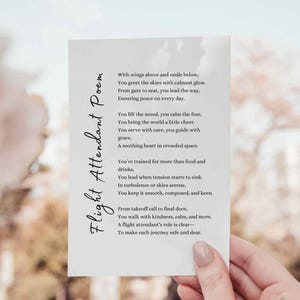 Flight Attendant Poem
With wings above and smile below,
You greet the skies with calmest glow.
From gate to seat, you lead the way,
Ensuring peace on every day.
You lift the mood, you calm the fear,
You bring the world a little cheer.
You serve with care, you guide with
grace,
A soothing heart in crowded space.
You're trained for more than food and
drinks,
You lead when tension starts to sink.
In turbulence or skies serene,
You keep it smooth, composed, and keen.
From takeoff call to final door,
You walk with kindness, calm, and more.
A flight attendant's role is clear—
To make each journey safe and dear.